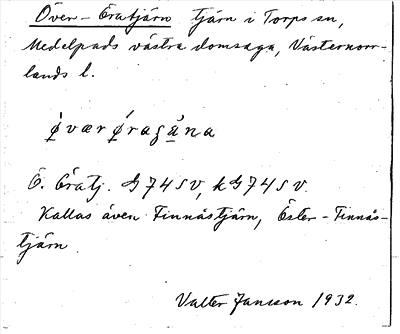 Över-Öratjärn tjärn i Torps sn,
Medelpads västra domsaga, Västernorr-
lands l.
Ö. Öratj. G 74 SV, kG 74 SV.
Kallas även Finnåstjärn, Öster-Finnås-
tjärn
Valter Jansson 1932.